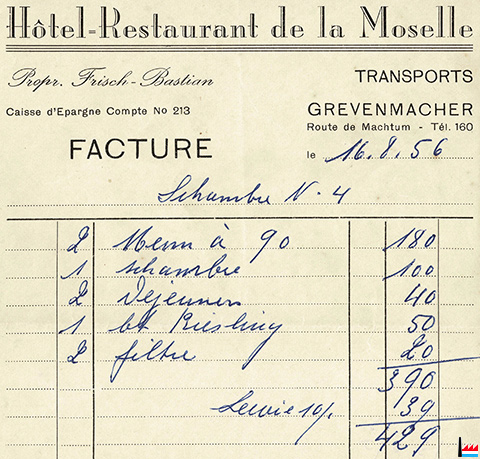 Hôtel-Restaurant de la Moselle
Propr. Frisch-Bastian
TRANSPORTS
Caisse d'Epargne Compte No 213
GREVENMACHER
Route de Machtum - Tél. 160
FACTURE
le 16.8.56
Schambre N-4
2 Menu à 90 180
1 schambre 100
2 Dejeuners 40
1 bt Riesling 50
2 filtre 20
390
Servie 10% 39
429